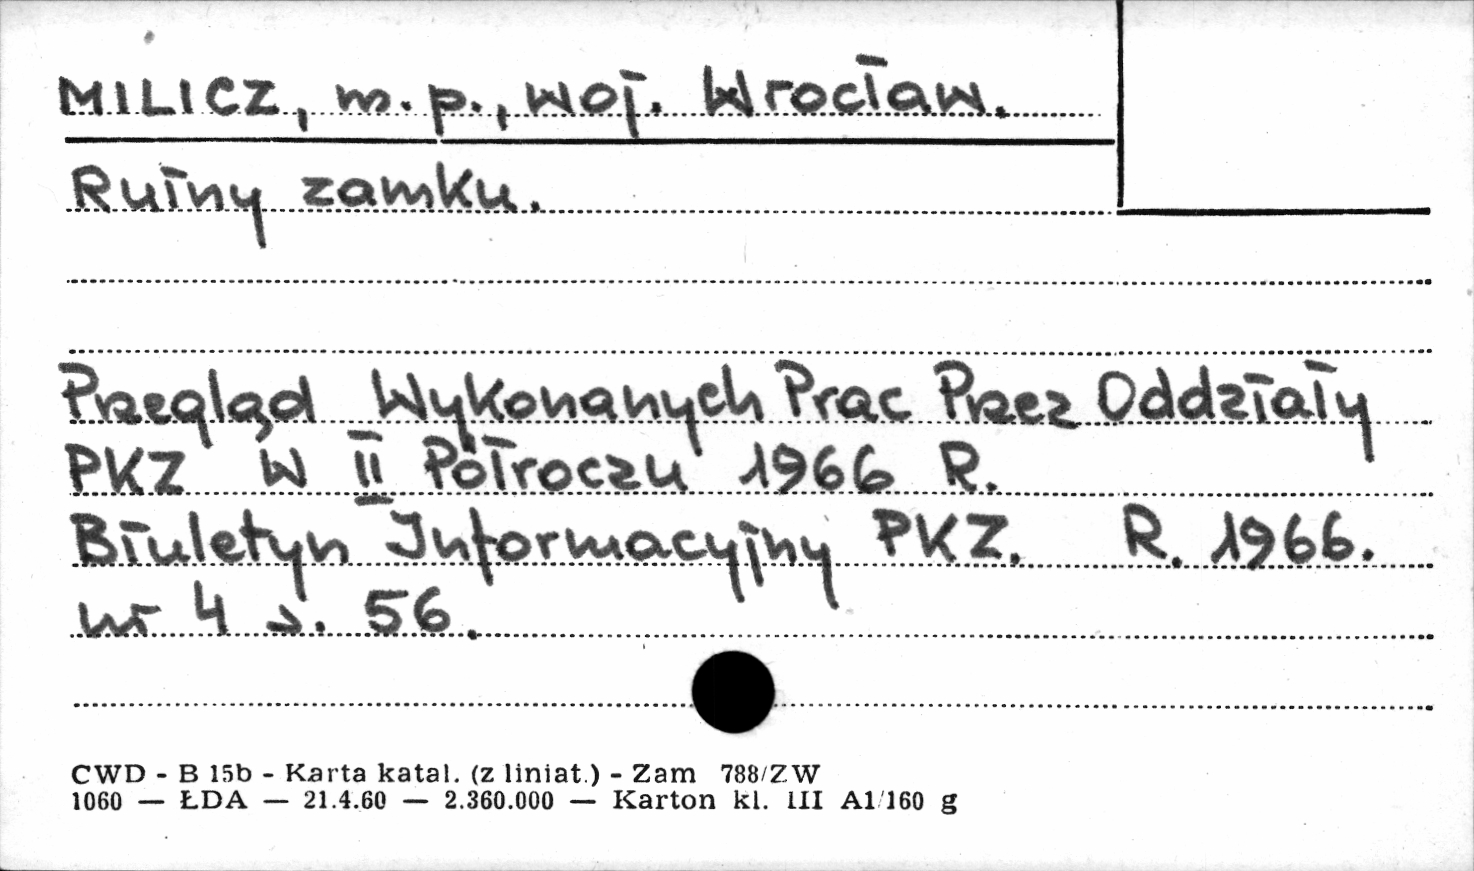 MILICZ, m.p., woj. Wrocław.
Ruiny zamku.
Przegląd Wykonanych Prac Przez Oddziały
PKZ W II Półroczu 1966 R.
Biuletyn Informacyjny PKZ. R. 1966.
nr 4 s. 56.
CWD - B 15b - Karta katal. (z liniat.) - Zam 788/ZW
1060 — ŁDA — 21.4.60 — 2.360.000 — Karton kl. III A1/160 g